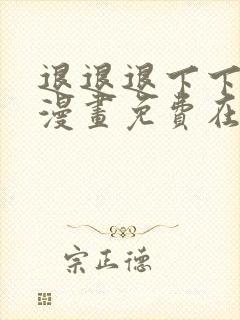 退退退下下
漫畫免費在
宗正德